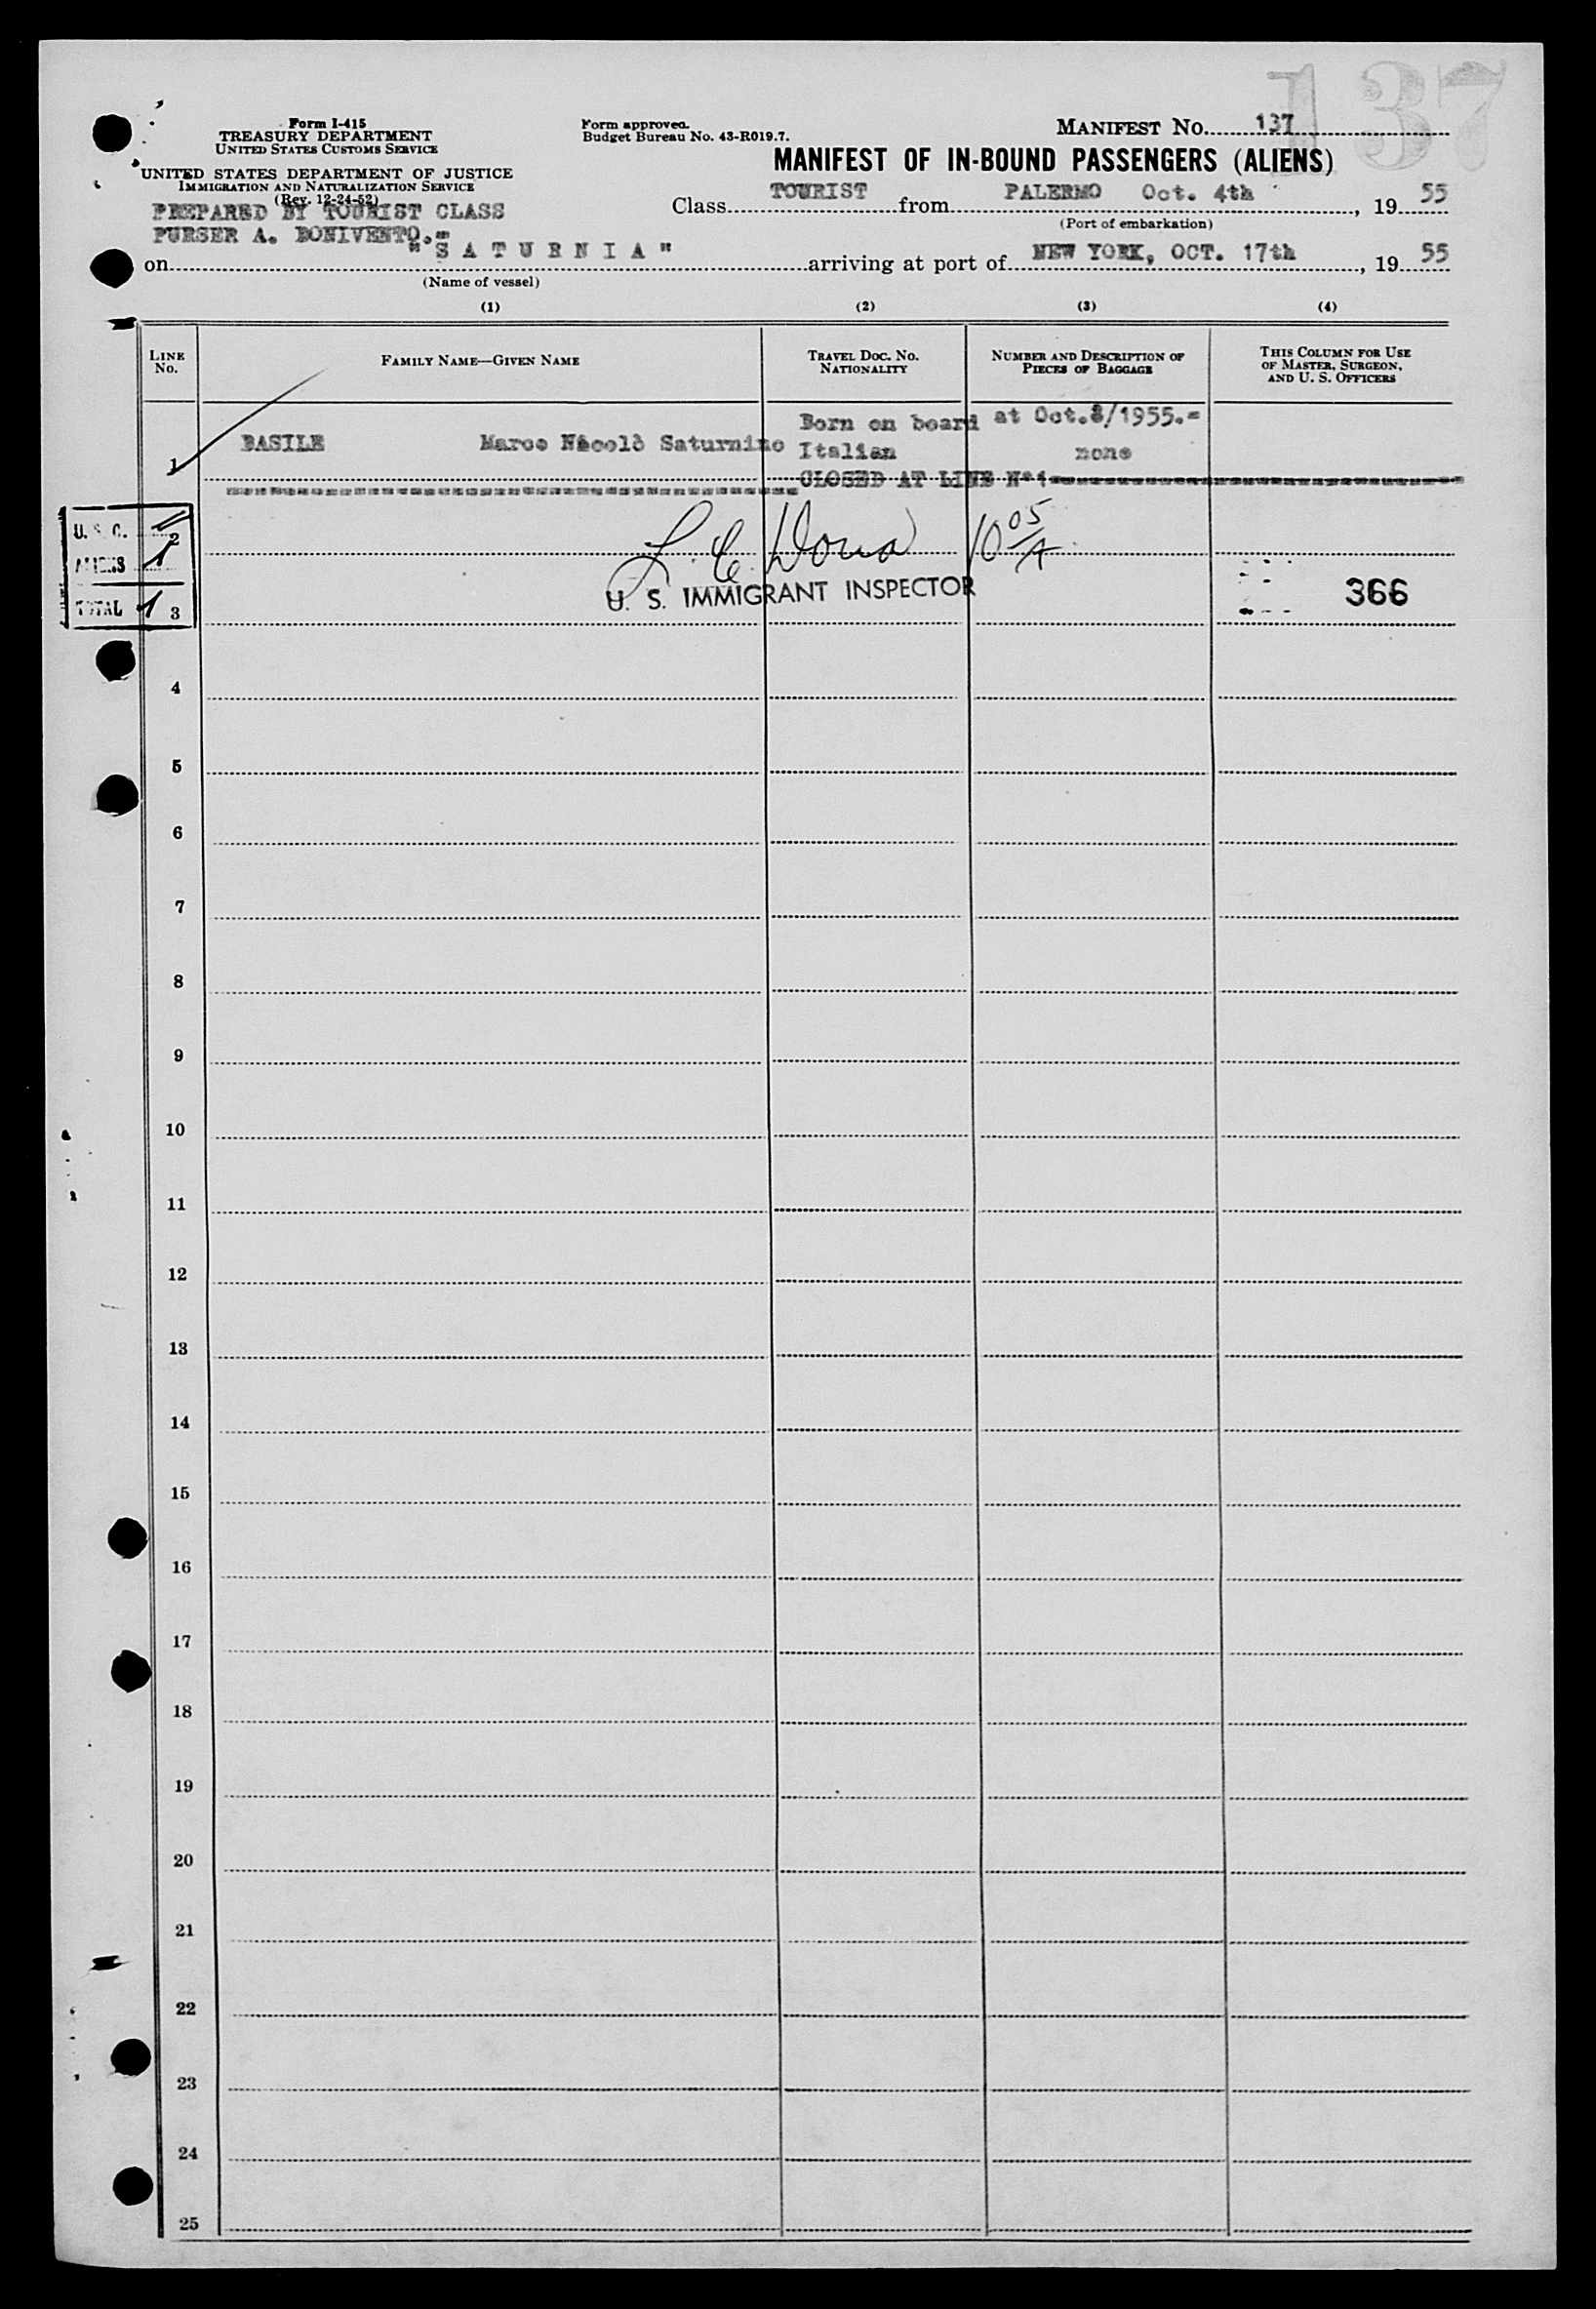 137
Form I-415
TREASURY DEPARTMENT
UNITED STATES CUSTOMS SERVICE
UNITED STATES DEPARTMENT OF JUSTICE
IMMIGRATION AND NATURALIZATION SERVICE
(Rev. 12-24-52)
PREPARED BY TOURIST CLASS
PURSER A. BONIVENTO.=
Form approved.
Budget Bureau No. 43-R019.7.
MANIFEST No. 137
MANIFEST OF IN-BOUND PASSENGERS (ALIENS)
Class TOURIST from PALERMO Oct. 4th, 19 55
(Port of embarkation)
on "S A T U R N I A" arriving at port of NEW YORK, OCT. 17th, 19 55
(Name of vessel)
(1) (2) (3) (4)
LINE No.
FAMILY NAME—GIVEN NAME
TRAVEL DOC. NO. NATIONALITY
NUMBER AND DESCRIPTION OF PIECES OF BAGGAGE
THIS COLUMN FOR USE OF MASTER, SURGEON, AND U. S. OFFICERS
Born on board at Oct.8/1955.=
1 BASILE Marco Nicolò Saturnino Italian none
CLOSED AT LINE N°1
U. S. C.
2
10 05/A
ALIENS 1
U. S. IMMIGRANT INSPECTOR
366
TOTAL 1
3
4
5
6
7
8
9
10
11
12
13
14
15
16
17
18
19
20
21
22
23
24
25